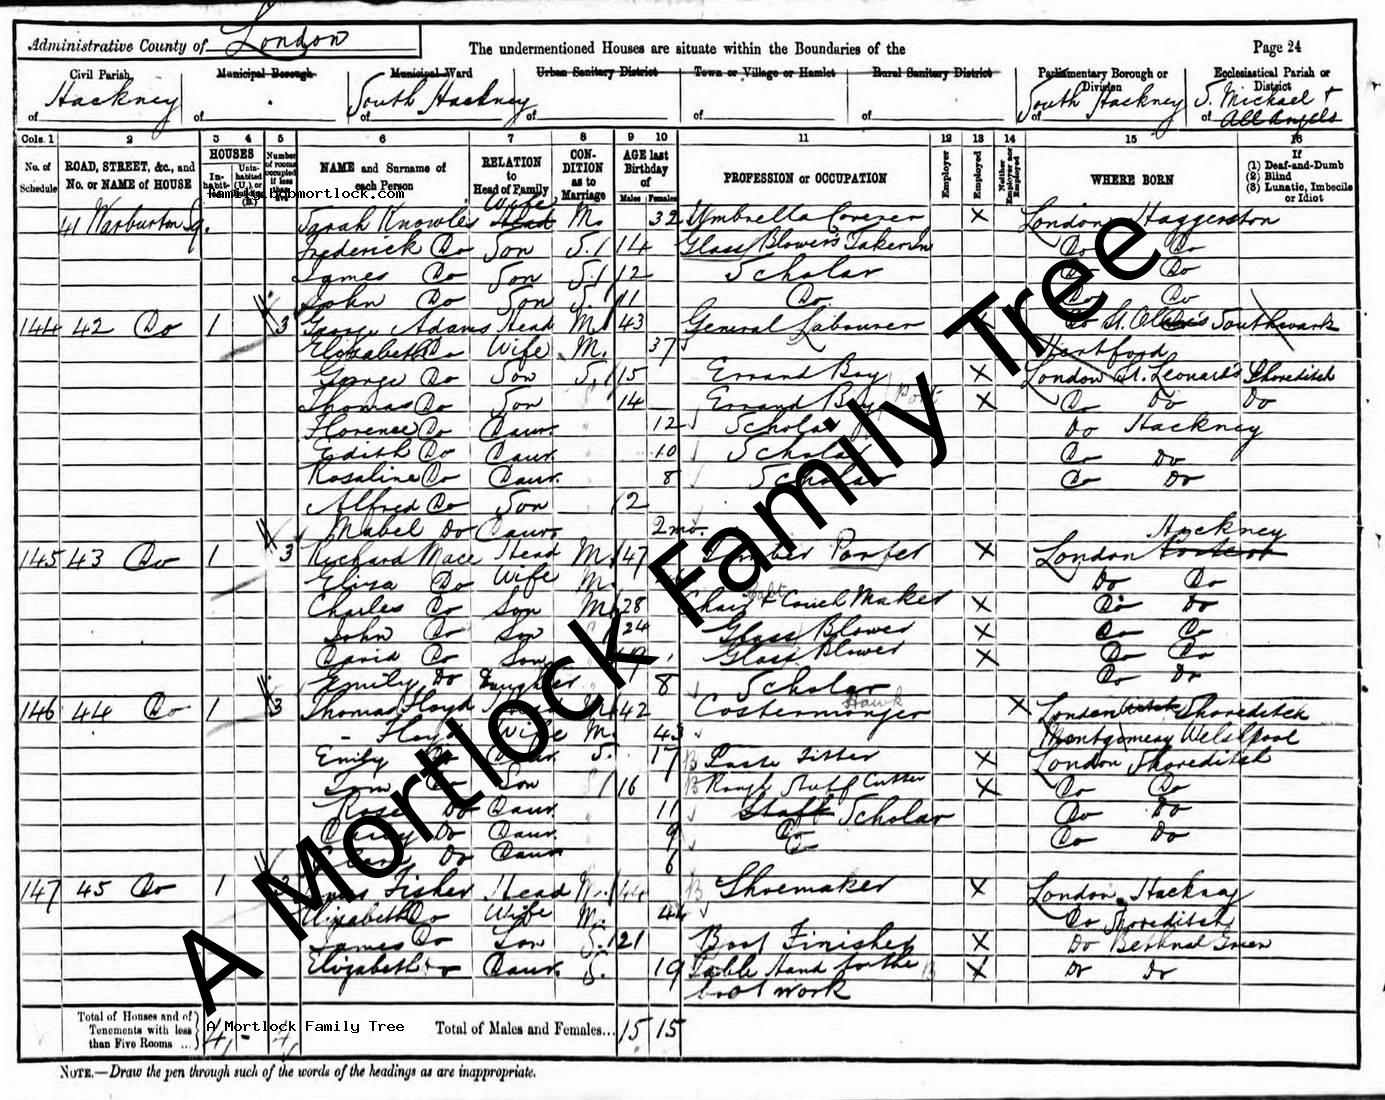 Administrative County of London
The undermentioned Houses are situate within the Boundaries of the
Page 24
Civil Parish Municipal Borough Municipal Ward Urban Sanitary District Town or Village or Hamlet Rural Sanitary District Parliamentary Borough or Division Ecclesiastical Parish or District
of Hackney of of South Hackney of of of of South Hackney of S. Michael & All Angels
Cols. 1 2 3 4 5 6 7 8 9 10 11 12 13 14 15 16
No. of Schedule ROAD, STREET, &c., and No. or NAME of HOUSE HOUSES Inhabited Uninhabited (U.) or Building (B.) Number of rooms occupied if less than five NAME and Surname of each Person RELATION to Head of Family CONDITION as to Marriage AGE last Birthday of Males Females PROFESSION or OCCUPATION Employer Employed Neither Employer nor Employed WHERE BORN If (1) Deaf-and-Dumb (2) Blind (3) Lunatic, Imbecile or Idiot
41 Warburton Sq. Sarah Knowles Head Wife M. 32 Umbrella Coverer X London Haggerston
Frederick Do Son S. 14 Glass Blower's Taker In Do Do
James Do Son S. 12 Scholar Do Do
John Do Son S. 11 Do. Do Do
144 42 Do 1 3 George Adams Head M. 43 General Labourer Do St. Southwark
Elizabeth Do Wife M. 37 Hertford
George Do Son S. 15 Errand Boy X London St. Leonard's Shoreditch
Thomas Do Son 14 Errand Boy X Do Do Do
Florence Do Daur. 12 Scholar Do Hackney
Edith Do Daur. 10 Scholar Do Do
Rosaline Do Daur. 8 Scholar Do Do
Alfred Do Son 2
Mabel Do Daur 2 mo.
145 43 Do 1 3 Richard Mace Head M. 47 Timber Porter X London Hackney
Eliza Do Wife M. Do Do
Charles Do Son M 28 Chair & Couch Maker X Do Do
John Do Son 24 Glass Blower X Do Do
David Do Son 19 Glass Blower X Do Do
Emily Do Daughter 8 Scholar Do Do
146 44 Do 1 3 Thomas Floyd Head M 42 Costermonger Hawk X London Shoreditch
- Floyd Wife M. 43 Montgomery Welshpool
Emily Do Daur S. 17 Paste Fitter X London Shoreditch
Tom Do Son 16 Rough Stuff Cutter X Do Do
Rose Do Daur. 11 Staff Scholar Do Do
Do Daur. 9 Do Do Do
Do Daur 6
147 45 Do 1 James Fisher Head M. 44 Shoemaker X London Hackney
Elizabeth Do Wife M. 44 Do Shoreditch
James Do Son S. 21 Boot Finisher X Do Bethnal Green
Elizabeth Do Daur. S. 19 Table Hand for the boot work X Do Do
Total of Houses and of Tenements with less than Five Rooms ... 4 - 4
Total of Males and Females... 15 15
NOTE.—Draw the pen through such of the words of the headings as are inappropriate.
A Mortlock Family Tree
A Mortlock Family Tree